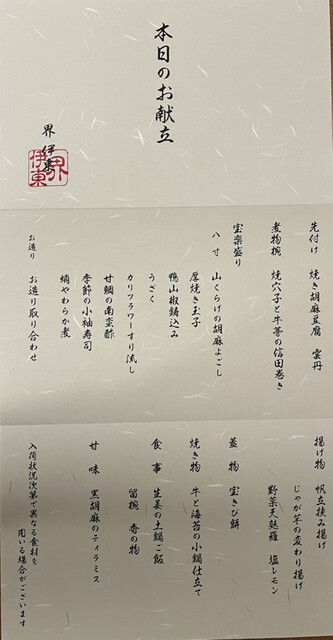 本日のお献立
界 伊東
界
伊東
先付け 焼き胡麻豆腐 雲丹
煮物椀 焼穴子と牛蒡の信田巻き
宝楽盛り
八寸 山くらげの胡麻よごし
厚焼き玉子
鴨山椒鋳込み
うざく
カリフラワーすり流し
甘鯛の南蛮酢
季節の小袖寿司
蛸やわらか煮
お造り お造り取り合わせ
揚げ物 帆立挟み揚げ
じゃが芋の変わり揚げ
野菜天麩羅 塩レモン
蓋物 宝きび餅
焼き物 牛と海苔の小鍋仕立て
食事 生姜の土鍋ご飯
留椀 香の物
甘味 黒胡麻のティラミス
入荷状況次第で異なる食材を
用いる場合がございます